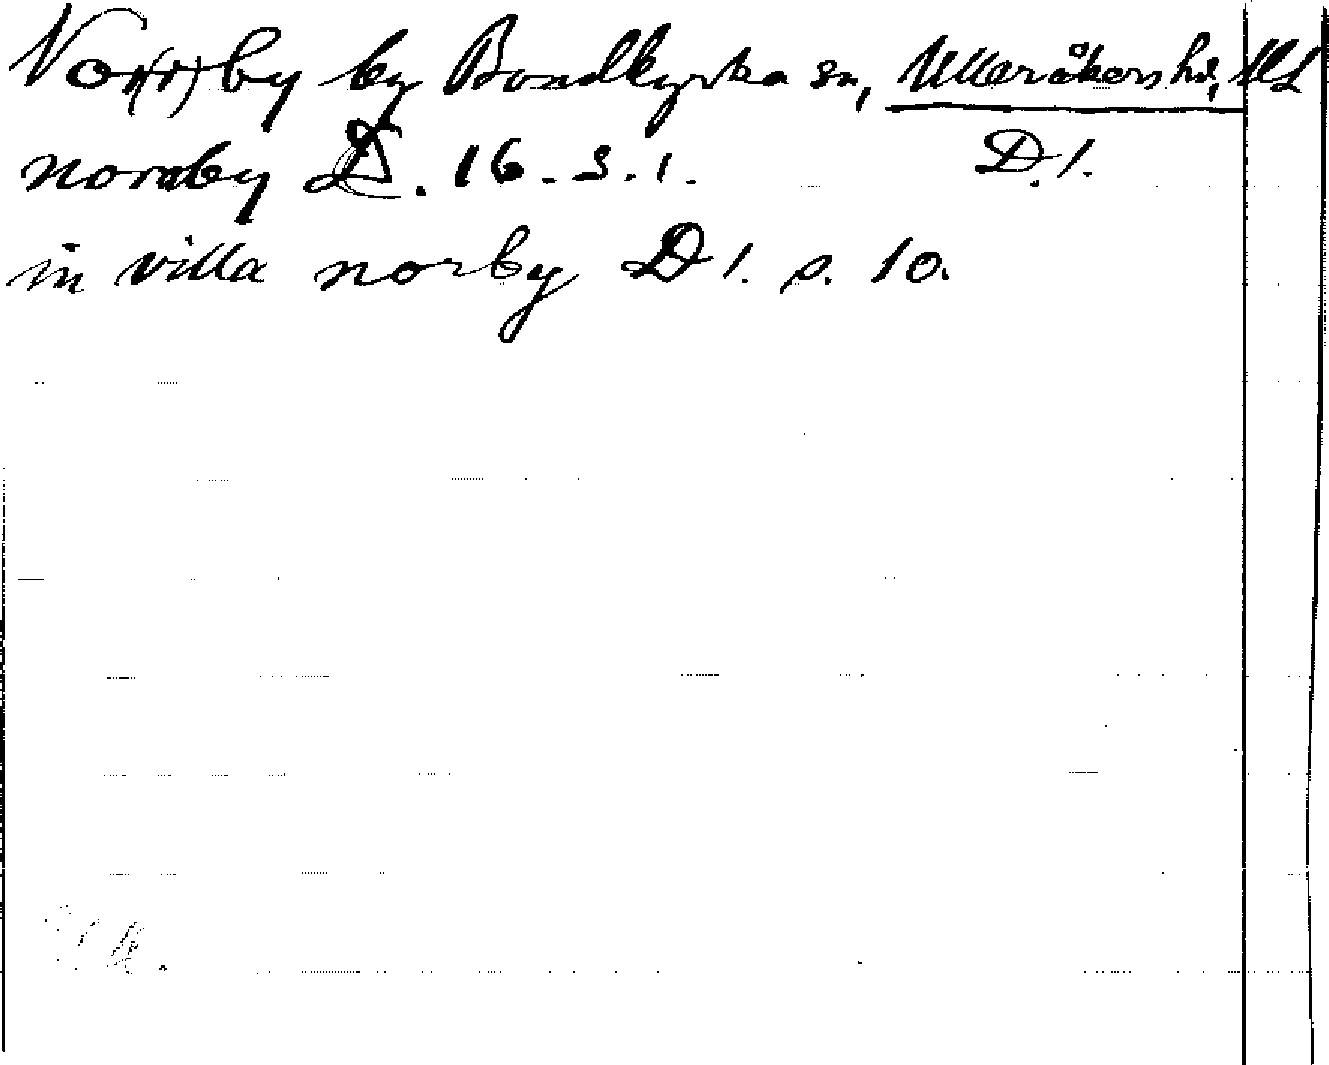 No(r)rby by Bondkyrka sn, Ulleråkers hd, Upl
norrby D. 16. s. 1. D. 1.
in villa norby D 1. s. 10.